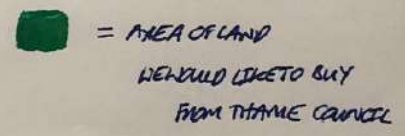 = AREA OF LAND
WE WOULD LIKE TO BUY
FROM THAME COUNCIL